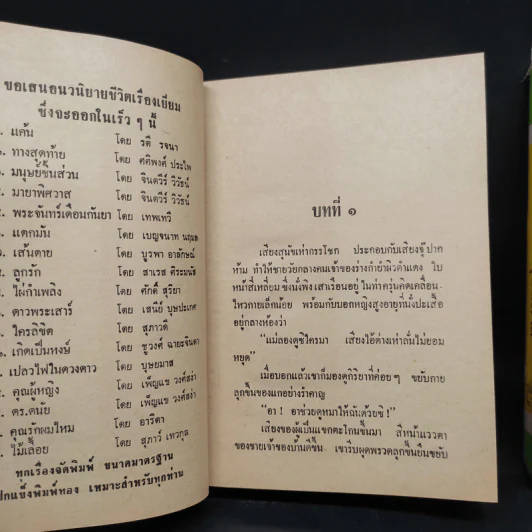 ขอเสนอนวนิยายชีวิตเรื่องเยี่ยม
ซึ่งจะออกในเร็ว ๆ นี้
แค้น โดย รตี รจนา
ทางสุดท้าย โดย ศศิพงศ์ ประไพ
มนุษย์ชิ้นส่วน โดย จินตวีร์ วิวัธน์
มายาพิศวาส โดย จินตวีร์ วิวัธน์
พระจันทร์เดือนกันยา โดย เทพเทวี
แตกมัน โดย เบญจนาท
เส้นตาย โดย บูรพา อารักษณ์
ลูกรัก โดย สาเรส ศิระมนัส
ไผ่กำเพลิง โดย ศักดิ์ สุริยา
ดาวพระเสาร์ โดย เสนีย์ บุษปะเกศ
ใครลิขิต โดย สุภาวดี
เกิดเป็นหงษ์ โดย ชูวงศ์ ฉายะจินดา
เปลวไฟในดวงดาว โดย บุษยมาส
คุณผู้หญิง โดย เพ็ญแข วงศ์สง่า
ดร.ตนัย โดย เพ็ญแข วงศ์สง่า
คุณรักผมไหม โดย อาริตา
ไม้เลื้อย โดย สุภาว์ เทวกุล
ทุกเรื่องจัดพิมพ์ ขนาดมาตรฐาน
ปกแข็งพิมพ์ทอง เหมาะสำหรับทุกท่าน
บทที่ ๑
เสียงสุนัขเห่ากรรโชก ประกอบกับเสียงจุ๊ปาก
ห้าม ทำให้ชายวัยกลางคนเจ้าของร่างกำยำผิวดำแดง ใบ
หน้าสี่เหลี่ยม ซึ่งนั่งพิงเสาเรือนอยู่ ในท่าครุ่นคิดเคลื่อน
ไหวกายเล็กน้อย พร้อมกับบอกหญิงสูงอายุที่นั่งปะเสื้อ
อยู่กลางห้องว่า
“แม่ลองดูซิใครมา เสียงไอ้ด่างเห่าลั่นไม่ยอม
หยุด”
เมื่อบอกแล้วเขาก็มองดูกิริยาที่ค่อย ๆ ขยับกาย
ลุกขึ้นของแกอย่างรำคาญ
“อา ! อาช่วยดูหมาให้ฉันด้วยซิ !”
เสียงของผู้เป็นแขกตะโกนขึ้นมา สีหน้าแววตา
ของชายเจ้าของบ้านดีขึ้น เขารีบผุดพรวดลุกขึ้นยืนขยับ